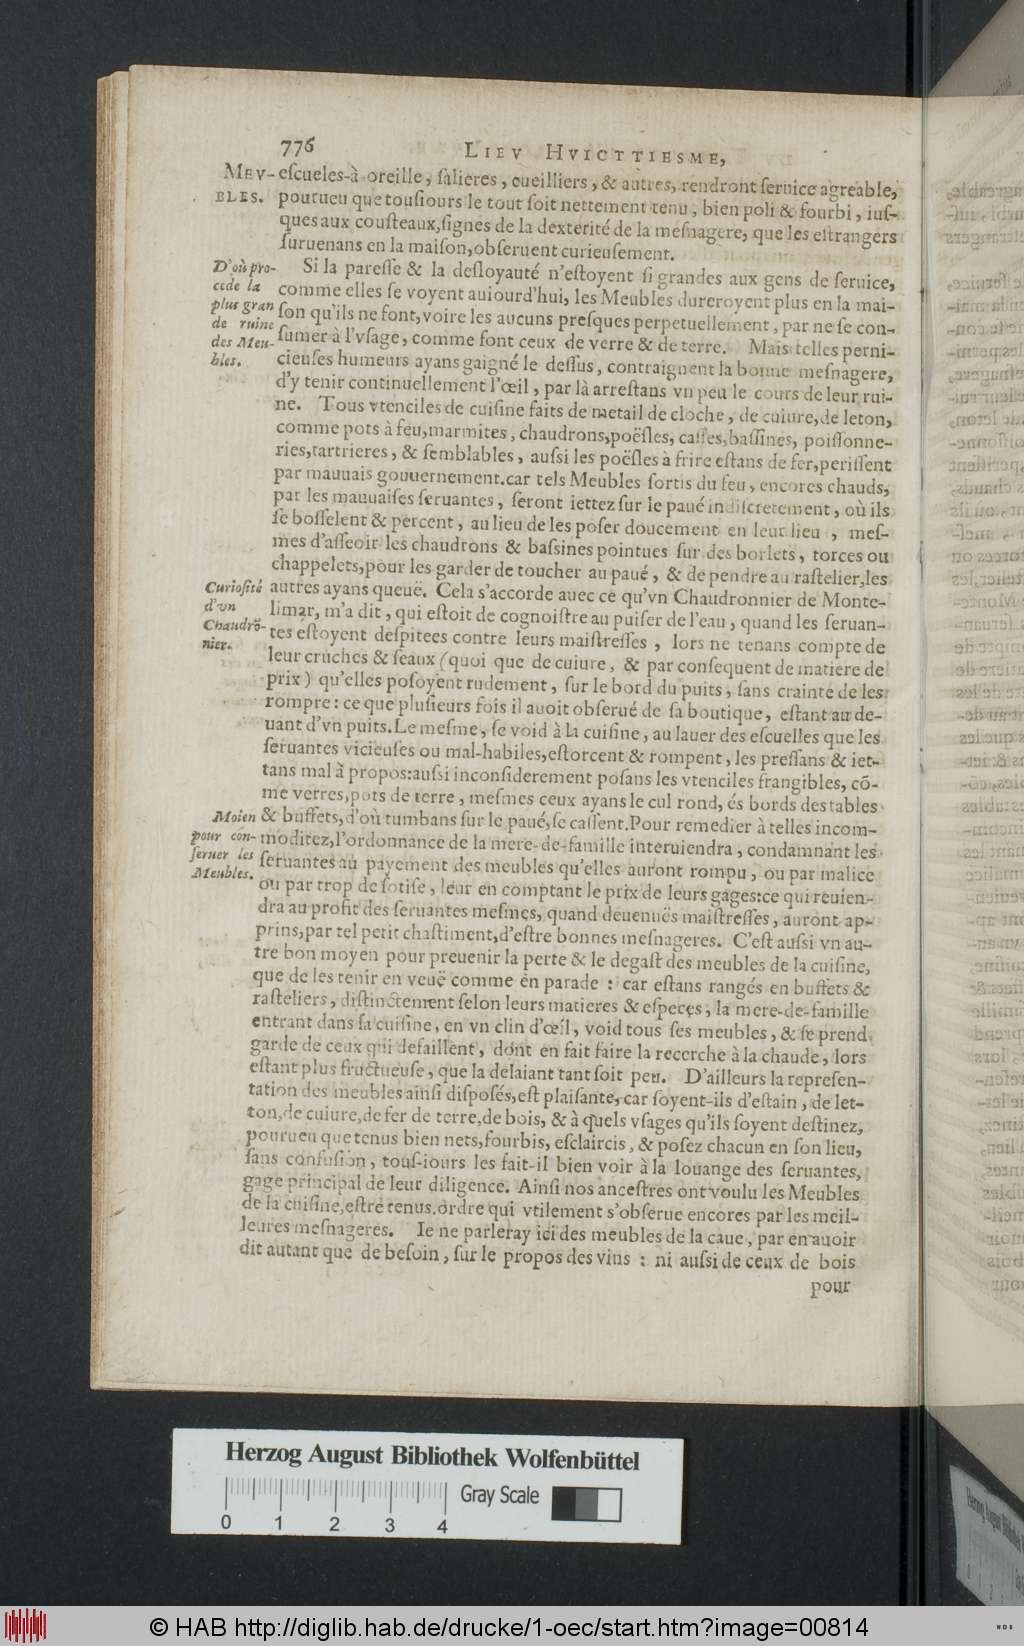 776
LIEV HVICTTIESME,
MEV-
BLES.
eſcueles-à oreille, ſalieres, cueilliers, & autres, rendront ſeruice agreable,
pourueu que touſiours le tout ſoit nettement tenu, bien poli & fourbi, iuſ-
ques aux couſteaux, ſignes de la dexterité de la meſnagere, que les eſtrangers
ſuruenans en la maiſon, obſeruent curieuſement.
D'où pro-
cede la
plus gran
de ruine
des Meu-
bles.
Si la pareſſe & la deſloyauté n'eſtoyent ſi grandes aux gens de ſeruice,
comme elles ſe voyent auiourd'hui, les Meubles dureroyent plus en la mai-
ſon qu'ils ne font, voire les aucuns preſques perpetuellement, par ne ſe con-
ſumer à l'vſage, comme font ceux de verre & de terre. Mais telles perni-
cieuſes humeurs ayans gaigné le deſſus, contraignent la bonne meſnagere,
d'y tenir continuellement l'œil, par là arreſtans vn peu le cours de leur rui-
ne. Tous vtenciles de cuiſine faits de metail de cloche, de cuiure, de leton,
comme pots à feu, marmites, chaudrons, poëſles, caſſes, baſſines, poiſſonne-
ries, tartrieres, & ſemblables, auſsi les poëſles à frire eſtans de fer, periſſent
par mauuais gouuernement. car tels Meubles ſortis du feu, encores chauds,
par les mauuaiſes ſeruantes, ſeront iettez ſur le paué indiſcretement, où ils
ſe boſſelent & percent, au lieu de les poſer doucement en leur lieu, meſ-
mes d'aſſeoir les chaudrons & baſsines pointues ſur des borlets, torces ou
chappelets, pour les garder de toucher au paué, & de pendre au raſtelier, les
autres ayans queuë. Cela s'accorde auec ce qu'vn Chaudronnier de Monte-
limar, m'a dit, qui eſtoit de cognoiſtre au puiſer de l'eau, quand les ſeruan-
tes eſtoyent deſpitees contre leurs maiſtreſſes, lors ne tenans compte de
leur cruches & ſeaux (quoi que de cuiure, & par conſequent de matiere de
prix) qu'elles poſoyent rudement, ſur le bord du puits, ſans crainte de les
rompre: ce que pluſieurs fois il auoit obſerué de ſa boutique, eſtant au de-
uant d'vn puits. Le meſme, ſe void à la cuiſine, au lauer des eſcuelles que les
ſeruantes vicieuſes ou mal-habiles, eſtorcent & rompent, les preſſans & iet-
tans mal à propos: auſsi inconſiderement poſans les vtenciles frangibles, cõ-
me verres, pots de terre, meſmes ceux ayans le cul rond, és bords des tables
& buffets, d'où tumbans ſur le paué, ſe caſſent. Pour remedier à telles incom-
moditez, l'ordonnance de la mere-de-famille interuiendra, condamnant les
ſeruantes au payement des meubles qu'elles auront rompu, ou par malice
ou par trop de ſotiſe, leur en comptant le prix de leurs gages: ce qui reuien-
dra au profit des ſeruantes meſmes, quand deuenuës maiſtreſſes, auront ap-
prins, par tel petit chaſtiment, d'eſtre bonnes meſnageres. C'eſt auſsi vn au-
tre bon moyen pour preuenir la perte & le degaſt des meubles de la cuiſine,
que de les tenir en veuë comme en parade: car eſtans rangés en buffets &
raſteliers, diſtinctement ſelon leurs matieres & eſpeces, la mere-de-famille
entrant dans ſa cuiſine, en vn clin d'œil, void tous ſes meubles, & ſe prend
garde de ceux qui defaillent, dont en fait faire la recerche à la chaude, lors
eſtant plus fructueuſe, que la delaiant tant ſoit peu. D'ailleurs la repreſen-
tation des meubles ainſi diſpoſés, eſt plaiſante, car ſoyent-ils d'eſtain, de let-
ton, de cuiure, de fer de terre, de bois, & à quels vſages qu'ils ſoyent deſtinez,
pourueu que tenus bien nets, fourbis, eſclaircis, & poſez chacun en ſon lieu,
ſans confuſion, touſ-iours les fait-il bien voir à la louange des ſeruantes,
gage principal de leur diligence. Ainſi nos anceſtres ont voulu les Meubles
de la cuiſine, eſtre tenus. ordre qui vtilement s'obſerue encores par les meil-
leures meſnageres. Ie ne parleray ici des meubles de la caue, par en auoir
dit autant que de beſoin, ſur le propos des vins: ni auſsi de ceux de bois
pour
Curioſité
d'vn
Chaudrõ-
nier.
Moien
pour con-
ſeruer les
Meubles.
Herzog August Bibliothek Wolfenbüttel
0 1 2 3 4
Gray Scale
© HAB http://diglib.hab.de/drucke/1-oec/start.htm?image=00814